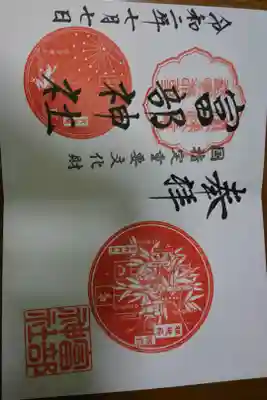 奉拝
国指定重要文化財
富部神社
令和二年七月七日
富部
神社